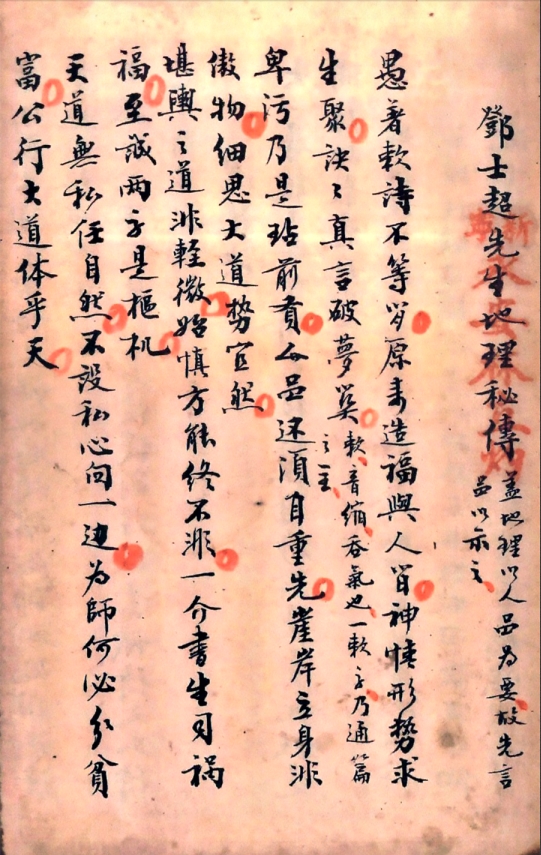 鄧士超先生地理秘傳
蓋地理以人品為要故先言
品以示之
愚著欶詩不等閒原来造福與人間神悽形勢求
生聚訣〻真言破夢
欶音縮吞氣也一欶字乃通篇
之主
卑污乃是玷前賢人品还須自重先崖岸立身非
傲物細思大道勢宜然
堪輿之道非輕微始慎方能終不非一介書生司禍
福至誠兩字是樞机
天道無私任自然不設私心向一边為師何必分貧
富公行大道体乎天